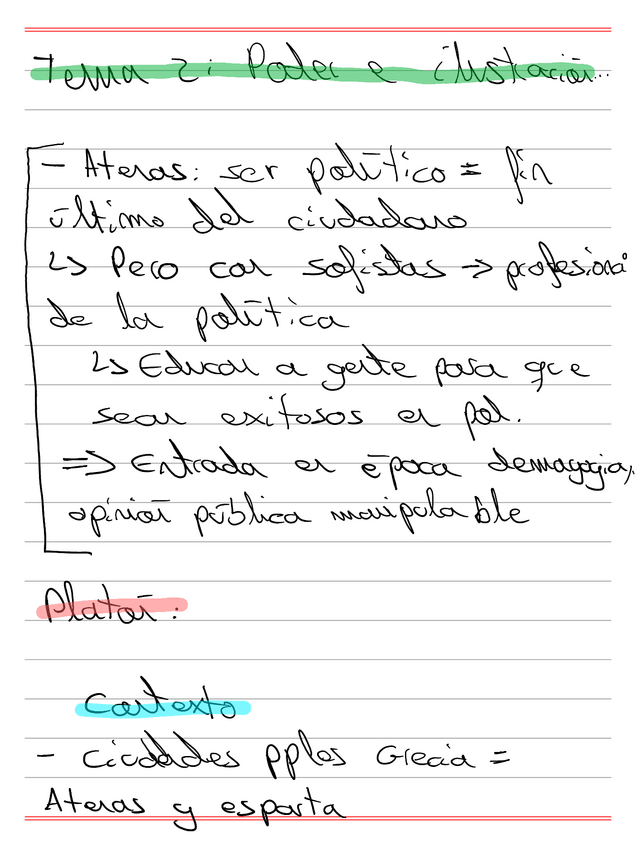 Tema 2: Poder e ilustración...
- Atenas: ser político = fin
último del ciudadano
↳ Pero con sofistas → profesional
de la política
↳ Educan a gente para que
sean exitosos en pol.
=> Entrada en época demagogia,
opinión pública manipulable
Platón:
Contexto
- ciudades pples Grecia =
Atenas y esparta